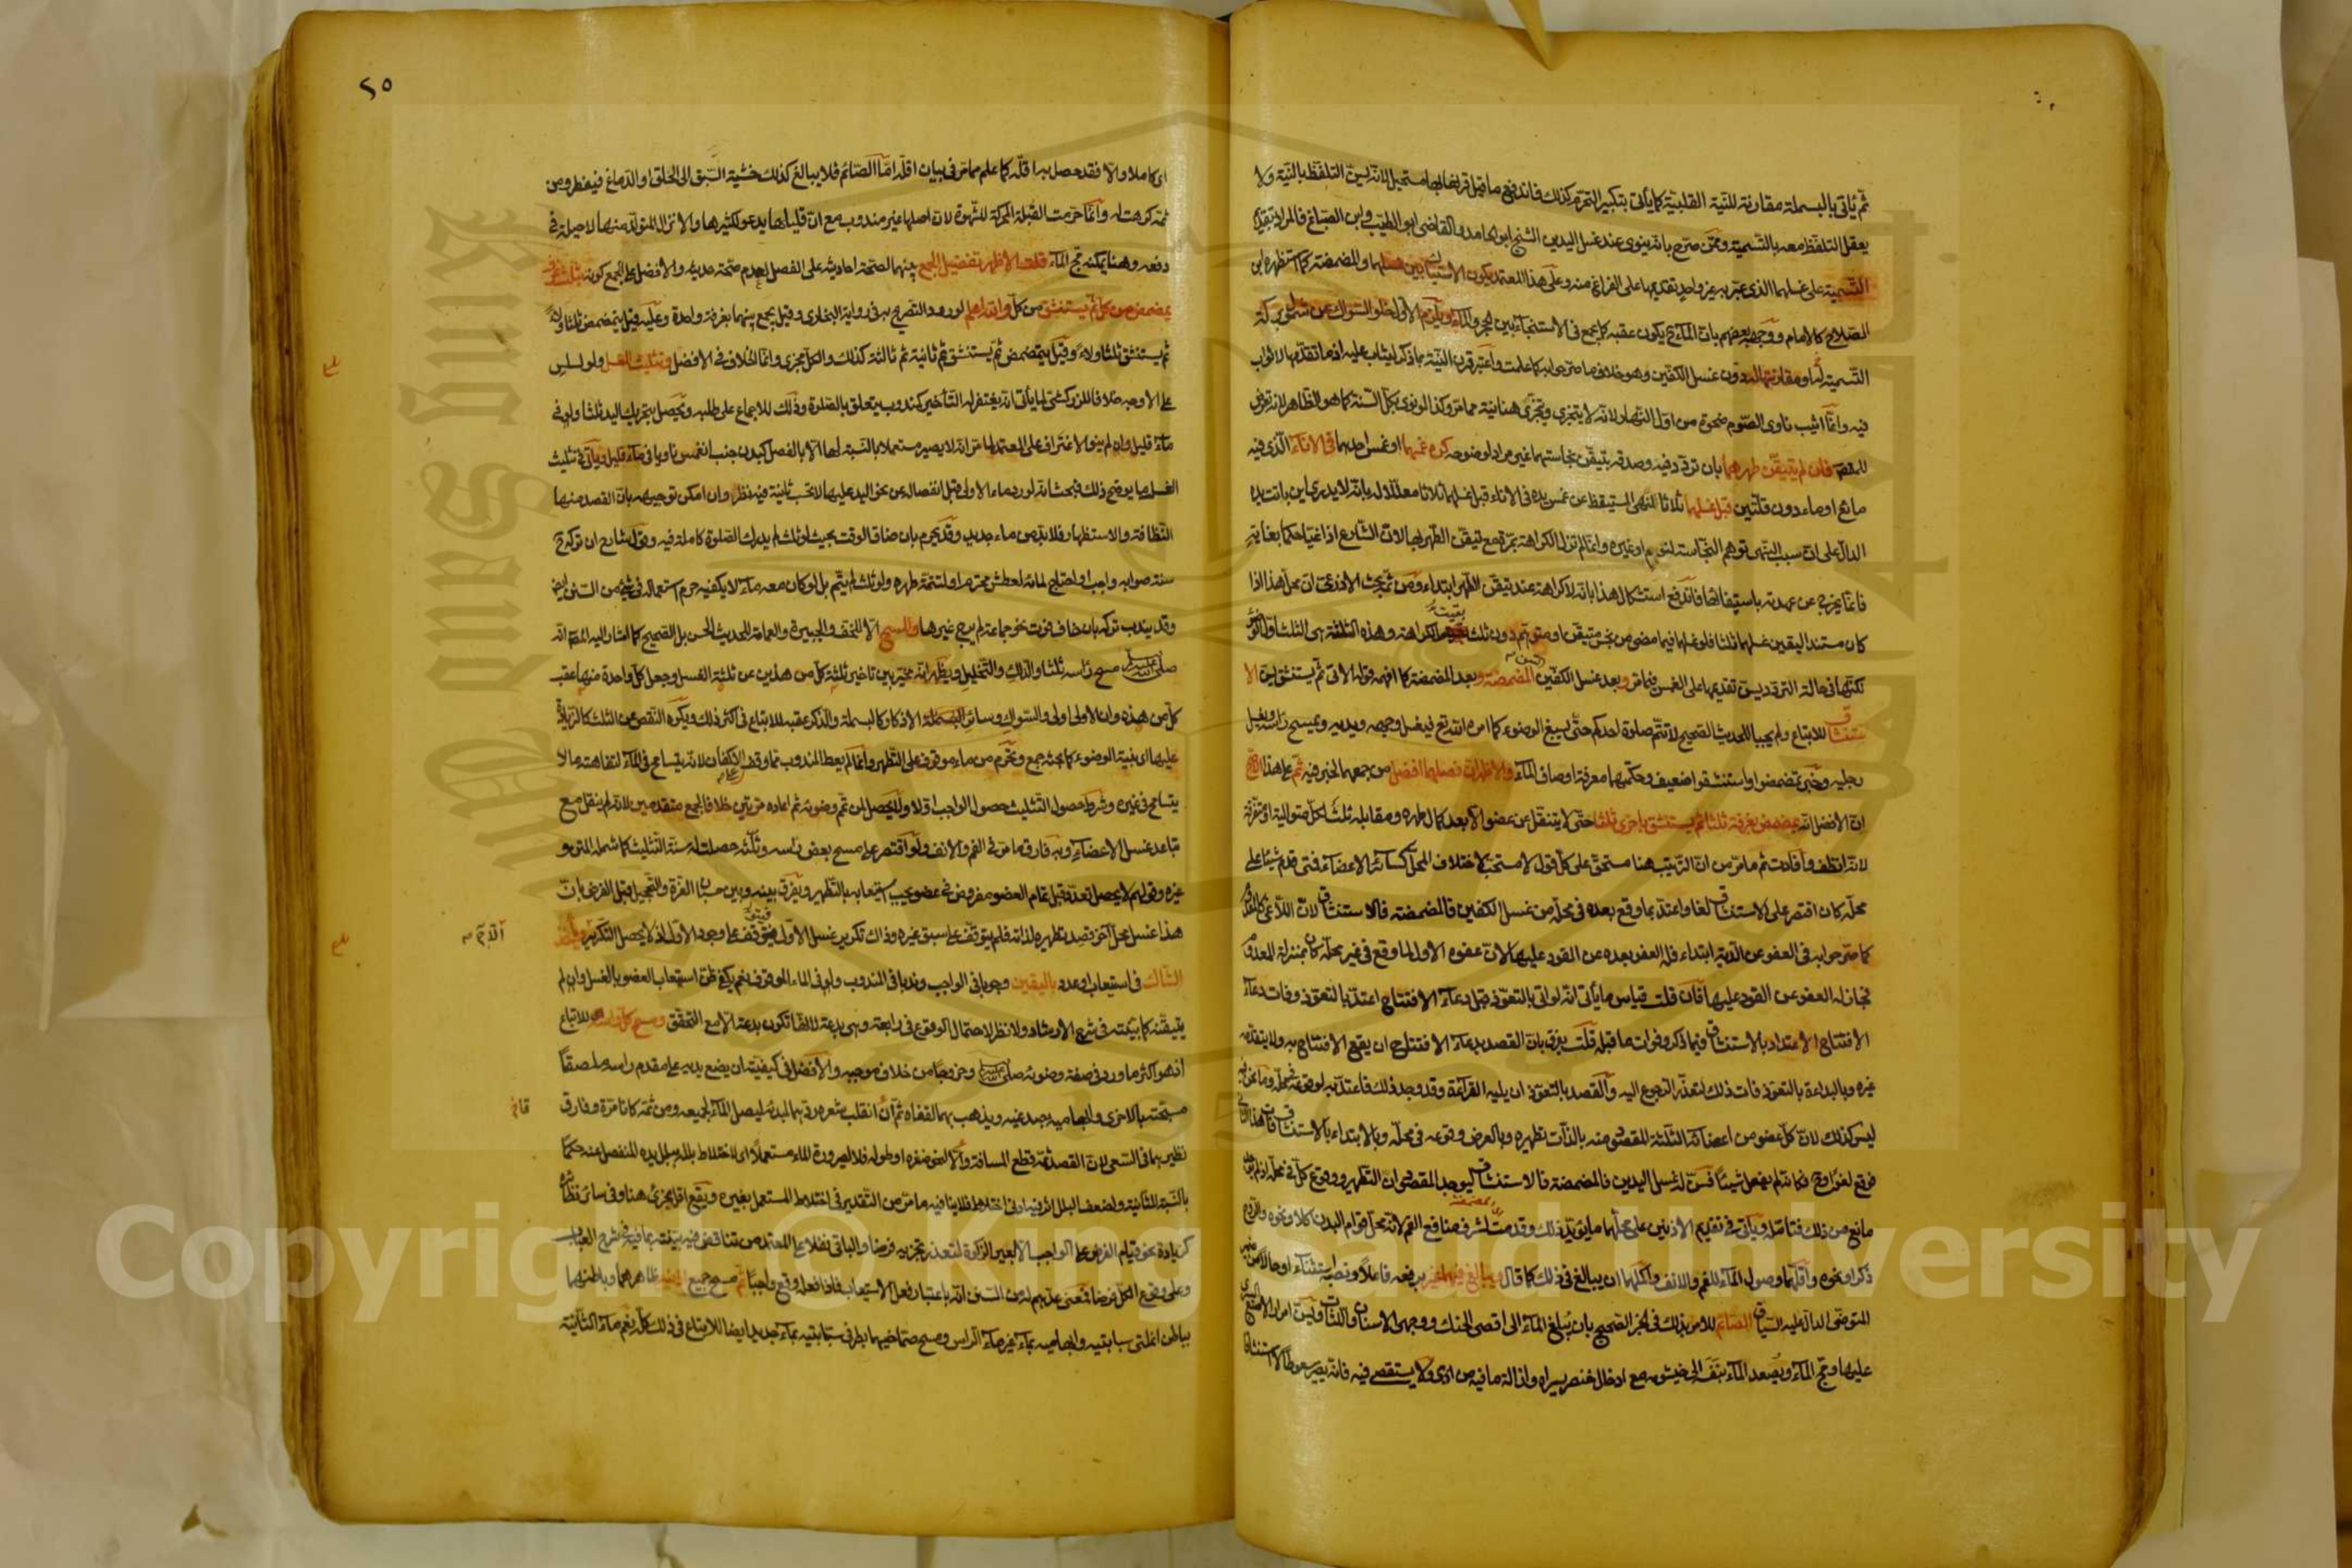 ثم يأتي بالبسملة مقارنة للنية القلبية كما يأتي بتكبير التحرم كذلك فاندفع ما قيل قرنها بها مستحيل لأنه يسن التلفظ بالنية ولا
يعقل التلفظ معه بالتسمية وممن صرح بأنه ينوي عند غسل اليدين الشيخ أبو حامد والقاضي أبو الطيب وابن الصباغ فالمراد بتقديم
التسمية على غسلهما الذي عبر به غير واحد تقديمها على الفراغ منه وعلى هذا المعتمد يكون الاستياك بين غسلهما والمضمضة كما استظهره ابن
الصلاح كالإمام ووجهه بعضهم بأن الماء يكون عقبه كما يجمع في الاستنجاء بين الحجر والماء ويلزم الأول خلو السواك عن شمول بركة
التسمية له ومقارنتها له دون غسل الكفين وهو خلاف ما صرحوا به كما علمت واعتبر قرن النية بما ذكر ليثاب عليه إذ ما تقدمها لا ثواب
فيه وإنما أثيب ناوي الصوم ضحوة من أول النهار لأنه لا يتجزى
فإن لم يتيقن طهرهما بأن تردد فيه وصدقه بتيقن نجاستهما غير مراد لوضوحه كره غمسهما أو غمس إحداهما في الإناء الذي فيه
مائع أو ماء دون قلتين قبل غسلهما ثلاثا لنهي المستيقظ عن غمس يده في الإناء قبل غسلها ثلاثا معللا له بأنه لا يدري أين باتت يده
الدال على أن سبب النهي توهم النجاسة لنوم أو غيره وإنما لم تزل الكراهة بمرة مع تيقن الطهر بها لأن الشارع إذا غيا حكما بغاية
فإنما يخرج عن عهدته باستيفائها فاندفع استشكال هذا بأنه لا كراهة عند تيقن الطهر ابتداء ومن ثم بحث الأذرعي أن محل هذا إذا
كان مستند اليقين غسلها ثلاثا فلو غسلها فيما مضى من نجس متيقن أو متوهم دون ثلاث بقيت الكراهة وهذه الثلاثة هي الثلاث أول الوضوء
لكنها في حالة التردد يسن تقديمها على الغمس فيما مر وبعد غسل الكفين المضمضة وبعد المضمضة كما أفهمه قوله الآتي ثم يستنشق يسن الا
ستنشاق للاتباع ولم يجبا للحديث الصحيح لا تتم صلاة أحدكم حتى يسبغ الوضوء كما أمره الله تع فيغسل وجهه ويديه ويمسح رأسه ويغسل
رجليه وخبر تمضمضوا واستنشقوا ضعيف وحكمتهما معرفة أوصاف الماء والأظهر أن فصلهما أفضل من جمعهما لخبر فيه ثم على هذا الأصح
أن الأفضل أنه يتمضمض بغرفة ثلاثا ثم يستنشق بأخرى ثلاثا حتى لا ينتقل عن عضو إلا بعد كمال طهره ومقابله ثلاث لكل متوالية أو متفرقة
لأنه أنظف وأفادت ثم ما مر من أن الترتيب هنا مستحق على كل قول لا مستحب لاختلاف المحل كسائر الأعضاء فمتى قدم شيئا على
محله كان اقتصر على الاستنشاق لغا واعتد بما وقع بعده في محله من غسل الكفين فالمضمضة فالاستنشاق
كما صرحوا به في العفو عن الدية ابتداء فله العفو بعده عن القود عليها لأن عفوه الأول لما وقع في غير محله كان بمنزلة المعدوم
فجاز له العفو عن القود عليها فإن قلت قياس ما يأتي أنه لو أتى بالتعوذ قبل دعاء الافتتاح اعتد بالتعوذ وفات دعاء
الافتتاح الاعتداد بالاستنشاق فيما ذكر وفوات ما قبله قلت يفرق بأن القصد بدعاء الافتتاح أن يقع الافتتاح به ولا يتقدمه
غيره وبالبداءة بالتعوذ فات ذلك لتعذر الرجوع إليه والقصد بالتعوذ أن يليه القراءة وقد وجد ذلك فاعتد به لوقوعه في محله
ليس كذلك لأن كل عضو من أعضائه الثلاثة المقصود منه بالذات تطهيره وبالعرض وقوعه في محله وبالابتداء بالاستنشاق
فوقع لغوا فكأنه لم يفعل شيئا فسن له غسل اليدين فالمضمضة فالاستنشاق ليوجد المقصودان التطهير ووقوع كل في محله
مانع من ذلك فتأمله ويأتي في تقديم الأذنين على محلهما ما يؤيد ذلك وقدمت لشرف منافع الفم لأنه محل قوام البدن أكلا ونحوه والروح
ذكرا ونحوه وأقلهما وصول الماء للفم والأنف وأكملهما أن يبالغ في ذلك كما قال ويبالغ فيهما غير برفعه فاعلا ونصبه استثناء أو حالا
المتوضي الدال عليه السياق الصائم للأمر بذلك في الخبر الصحيح بأن يبلغ الماء إلى أقصى الحنك ووجهي الأسنان واللثات ويسن إمرار الإصبع
عليها ومج الماء ويصعد الماء بنفسه إلى خيشومه مع إدخال خنصر يسراه وإزالة ما فيه من أذى ولا يستقصي فيه فإنه يصير سعوطا لا استنشاقا
٢٥
أي كاملا وإلا فقد حصل به أقله كما علم مما مر في بيان أقله أما الصائم فلا يبالغ كذلك خشية السبق إلى الحلق أو الدماغ فيفطر ومن
ثمة كرهت له وإنما حرمت القبلة المحركة للشهوة لأن أصلها غير مندوب مع أن قليلها يدعو لكثيرها والإنزال المتولد منها لا حيلة في
دفعه وهنا يمكنه مج الماء قلت الأظهر تفضيل الجمع بينهما لصحة أحاديثه على الفصل لعدم صحة حديثه والأفضل على الجمع كونه بثلاث غرف
يمضمض من كل ثم يستنشق من كل والله أعلم لورود التصريح به في رواية البخاري وقيل يجمع بينهما بغرفة واحدة وعليه قيل يتمضمض ثلاثا ولاء
ثم يستنشق ثلاثا ولاء وقيل يتمضمض ثم يستنشق ثم ثانية ثم ثالثة كذلك والكل مجزئ وإنما الخلاف في الأفضل وتثليث الغسل ولو لسلس
على الأوجه خلافا للزركشي لما يأتي أنه يغتفر له التأخير لمندوب يتعلق بالصلاة وذلك للإجماع على طلبه ويحصل بتحريك اليد ثلاثا ولو في
ماء قليل وإن لم ينو الاغتراف على المعتمد لما مر أنه لا يصير مستعملا بالنسبة لها إلا بالفصل كبدن جنب انغمس ناويا في ماء قليل ويأتي في تثليث
الغسل ما يوضح ذلك فبحث أنه لو ردد ماء الأولى قبل انفصاله عن نحو اليد عليها لا تحسب ثانية فيه نظر وإن أمكن توجيهه بأن القصد منها
النظافة والاستظهار فلا بد من ماء جديد وقد يحرم بأن ضاق الوقت بحيث لو ثلث لم يدرك الصلاة كاملة فيه
أو احتاج لمائه لعطش محترم أو لتتمة طهره ولو ثلث لم يتم بل لو كان معه ماء لا يكفيه حرم استعماله في شيء من السنن أيض
وقد يندب تركه بأن خاف فوت نحو جماعة لم يرج غيرها والمسح إلا للخف والجبيرة والعمامة للحديث الحسن بل الصحيح كما أشار إليه المص أنه
صلى الله عليه وسلم مسح رأسه ثلاثا والدلك والتخليل ويظهر أنه مخير بين تأخير ثلاثة كل من هذين عن ثلاثة الغسل وجعل كل واحدة منها عقب
كل من هذه وأن الأولى أولى والسواك وسائر الأذكار كالبسملة والذكر عقبه للاتباع في أكثر ذلك ويكره النقص عن الثلاث كالزيادة
عليها أي بنية الوضوء كما بحثه جمع وتحرم من ماء موقوف على التطهر وإنما لم يعط المندوب لأنه يتسامح في الماء لتفاهته ما لا
يتسامح في غيره وشرط حصول التثليث حصول الواجب أولا ولا يحصل لمن تم وضوءه ثم أعاده مرتين خلافا لجمع متقدمين لأنه لم ينقل مع
تباعد غسل الأعضاء وبه فارق ما مر في الفم والأنف ولو اقتصر على مسح بعض رأسه وثلثه حصلت له سنة التثليث كما شمله المتن و
غيره وقولهم لا يحصل تعدد قبل تمام العضو مفروض في عضو يجب استيعابه بالتطهير ويفرق بينه وبين حسبان الغرة والتحجيل قبل الفرض بأن
هذا غسل محل آخر قصد تطهيره لذاته فلم يتوقف على سبق غيره وذاك تكرير غسل الأول فيتوقف على وجود الأول إذ لا يحصل التكرير ويأخذ
الشاك في استيعاب أو عدد باليقين وجوبا في الواجب وندبا في المندوب ولو في الماء الموقوف نعم يكفي ظن استيعاب العضو بالغسل وإن لم
يتيقنه كما بينته في شرح الإرشاد ولا نظر لاحتمال الوقوع في رابعة وهي بدعة لأنها لا تكون بدعة إلا مع التحقق ومسح كل رأسه للاتباع
إذ هو أكثر ما ورد في صفة وضوئه صلى الله عليه وسلم وخروجا من خلاف موجبه والأفضل في كيفيته أن يضع يديه على مقدم رأسه ملصقا
مسبحته بالأخرى وإبهاميه بصدغيه ويذهب بهما لقفاه ثم إن انقلب شعره ردهما لمبدئه ليصل الماء لجميعه ومن ثمة كانا مرة وفارقا
نظيرهما في السعي لأن القصد ثمة قطع المسافة وإلا لنحو ضفره أو طوله فلا لصيرورة الماء مستعملا أي لاختلاط بلله ببلل يده المنفصل عنه حكما
بالنسبة للثانية ولضعف البلل أثر فيه أدنى اختلاط فلا ينافيه ما مر من التقدير في اختلاط المستعمل بغيره ويقع أقل مجزئ هنا وفي سائر نظائره
كزيادة نحو قيام الفرض على الواجب إلا بعير الزكاة لتعذر تجزيه فرضا والباقي نفلا على المعتمد من تناقض فيه بينته بما فيه في شرح العباب
وعلى وقوع الكل فرضا فمعنى عدهم له من السنن أنه باعتبار فعل الاستيعاب فإذا فعله وقع واجبا ثم مسح جميع أذنيه ظاهرهما وباطنهما
بباطن أنملتي سبابتيه وإبهاميه بماء غير ماء الرأس ومسح صماخيهما بطرفي سبابتيه بماء جديد أيضا للاتباع في ذلك كله نعم ماء الثانية
Copyright © King Saud University